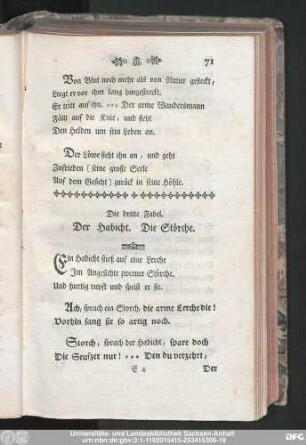 71
Von Blut noch mehr als von Natur gefleckt,
Liegt er vor ihm lang hingestreckt.
Er tritt auf ihn. ... Der arme Wandersmann
Fällt auf die Knie, und fleht
Den Helden um sein Leben an.
Der Löwe sieht ihn an, und geht
Zufrieden (seine große Seele
Auf dem Gesicht) zurück in seine Höhle.
Die dritte Fabel.
Der Habicht. Die Störche.
Ein Habicht stieß auf eine Lerche
Im Angesichte zweener Störche.
Und hurtig rupft und speist er sie.
Ach, sprach ein Storch, die arme Lerche die!
Vorhin sang sie so artig noch.
Storch, sprach der Habicht, spare doch
Die Seufzer nur! ... Den du verzehrt,
E 4
Der
Universitäts- und Landesbibliothek Sachsen-Anhalt
urn:nbn:de:gbv:3:1-1192015415-253415306-19
DFG